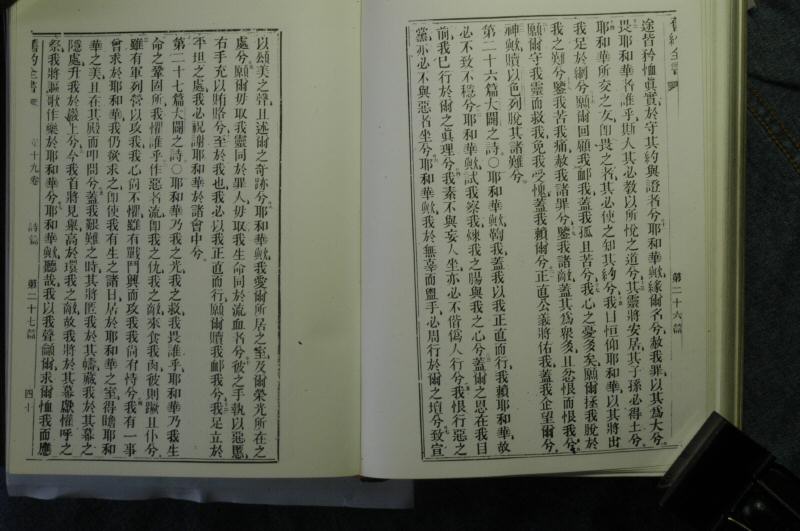 舊約全書
途皆矜恤眞實於守其約與證者兮耶和華歟緣爾名兮赦我罪以其爲大兮
畏耶和華者誰乎斯人其必教以所悅之道兮其靈將安居其子孫必得土兮
耶和華所交之友卽畏之者其必使之知其約兮我目恒仰耶和華以其將出
我足於網兮願爾回顧我卹我蓋我孤且苦兮我心之憂多矣願爾拯我脫於
我之難兮鑒我苦我痛赦我諸罪兮鑒我諸敵蓋其爲衆多且忿恨而恨我兮
願爾守我靈而救我免我受愧蓋我賴爾兮正直公義將佑我蓋我企望爾兮
神歟贖以色列脫其諸難兮
第二十六篇大闢之詩〇耶和華歟鞫我蓋我以我正直而行我賴耶和華故
必不致不穩兮耶和華歟試我察我煉我之腸與我之心兮蓋爾之恩在我目
前我已行於爾之眞理兮我素不與妄人坐亦必不偕僞人行兮我恨行惡之
黨亦必不與惡者坐兮耶和華歟我於無辜而盥手必周行於爾之壇兮致宣
第二十六篇
以頌美之聲且述爾之奇跡兮耶和華歟我愛爾所居之室及爾榮光所在之
處兮願爾毋取我靈同於罪人毋取我生命同於流血者兮彼之手執以惡慝
右手充以賄賂兮至於我也我必以我正直而行願爾贖我卹我兮我足立於
平坦之處我必祝謝耶和華於諸會中兮
第二十七篇大闢之詩〇耶和華乃我之光我之救我畏誰乎耶和華乃我生
命之鞏固所我懼誰乎作惡者流卽我之仇我之敵來食我肉彼則蹶且仆兮
雖有軍列營以攻我我心尙不懼雖有戰鬥興而攻我我尙有恃兮我有一事
曾求於耶和華我仍欲求之卽使我有生之諸日居於耶和華之室得瞻耶和
華之美且在其殿而叩問兮蓋我艱難之時其將匿我於其幬藏我於其幕之
隱處升我於巖上兮今我首將見舉高於環我之敵故我將於其幕獻懽呼之
祭我將謳歌作樂於耶和華兮耶和華歟聽哉我以我聲籲爾求爾恤我而應
舊約全書 十九卷 詩篇 第二十七篇 四十